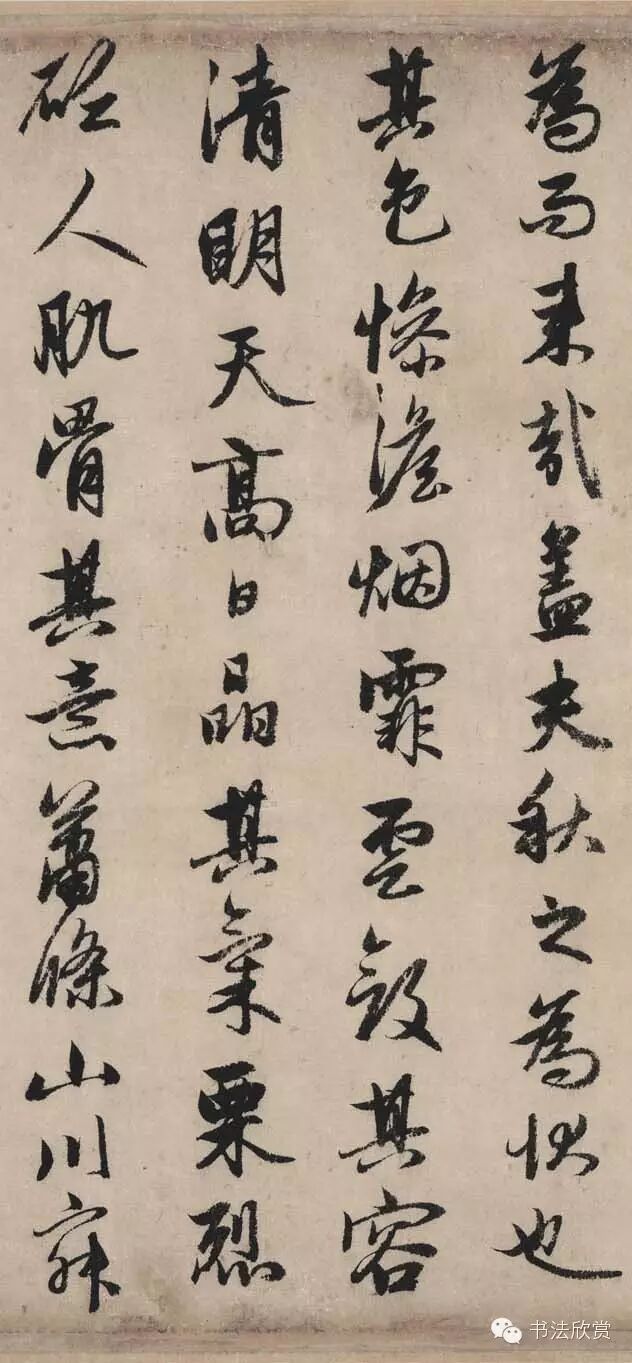 為而来哉盖夫秋之為状也
其色惨澹烟霏雲斂其容
清明天高日晶其氣栗烈
砭人肌骨其意蕭條山川寂
书法欣赏